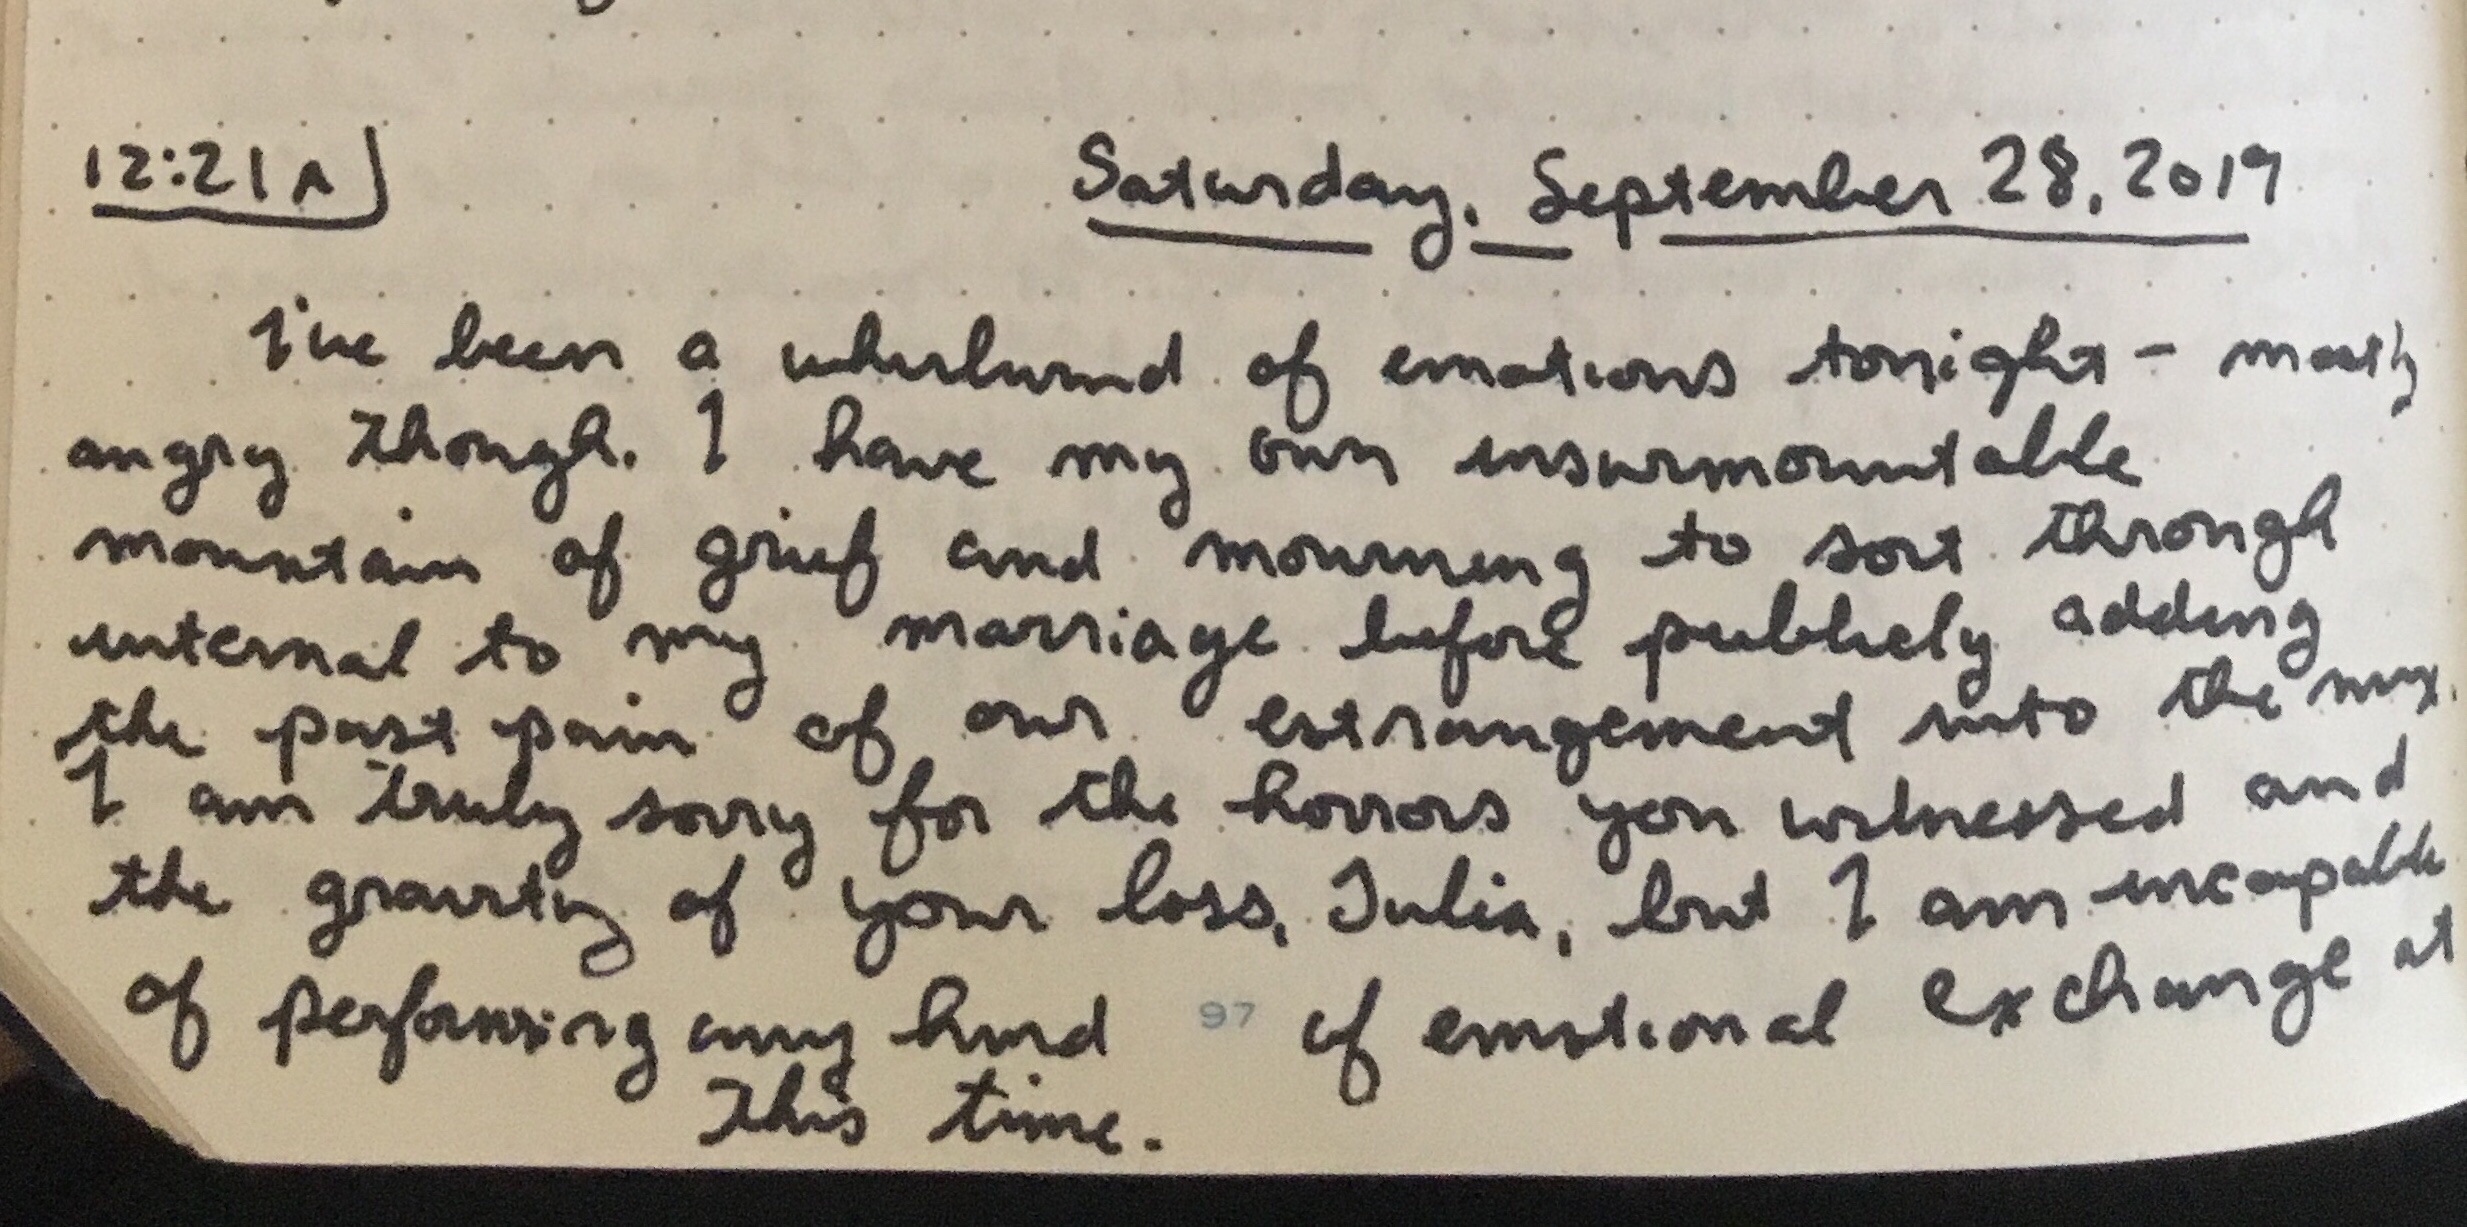 12:21A
Saturday, September 28, 2019
I've been a whirlwind of emotions tonight – mostly
angry though. I have my own insurmountable
mountain of grief and mourning to sort through
internal to my marriage before publicly adding
the past pain of our estrangement into the mix.
I am truly sorry for the horrors you witnessed and
the gravity of your loss, Julia, but I am incapable
of performing any kind of emotional exchange at
this time.
97